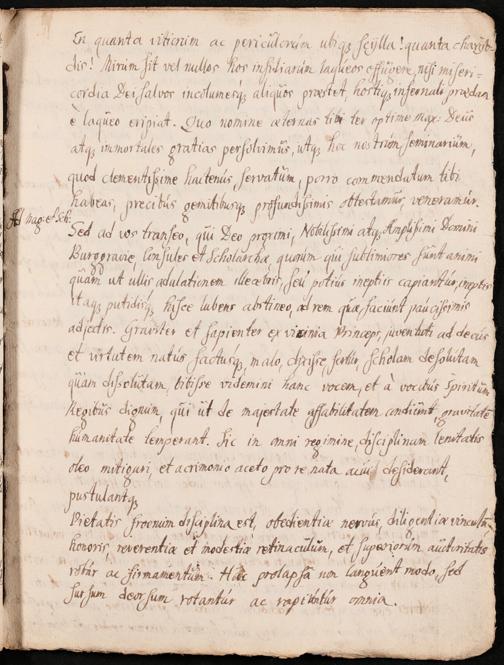 En quanta vitiorum ac periculorum ubiq; scylla! quanta charyb-
dis! Mirum sit vel nullos hos insidiarum laqueos effugere, nisi miseri-
cordia Dei salvos incolumesq; aliquos praestet, hostiq; infernali praedam
è laqueo eripiat. Quo nomine aeternas tibi ter optime max: Deus
atq; immortales gratias persolvimus, utq; hoc nostrum seminarium,
quod clementissime hactenus servatum, porro commendatum tibi
habeas, precibus gemitibusq; profundissimis obtestamur, veneramur.
Ad mag: et Sch:
Sed ad vos transeo, qui Deo proximi, Nobilissimi atq; Amplissimi Domini
Burggravie, Consules et Scholarchae, quorum qui sublimiores sunt animi
quam ut ullis adulationem illecebris, seu potius ineptiis capiantur, ineptis
itaq; putidisq; hisce lubens abstineo, ad rem quae faciunt paucissimis
adjectis. Graviter et sapienter ex vicinia Princeps, juventuti ad decus
et virtutem natus factusq; malo, dixisse fertur, Scholam desolatam
quam dissolutam, bitisse videmini hanc vocem, et à vocatus Spiritum
Regibus dignum, qui ut de majestate affabilitatem condiunt, gravitate
humanitate temperant. Sic in omni regimine, disciplinam lenitatis
oleo mitigari, et acrimonio aceto pro re nata acui desiderant,
pustulantq;
Pietatis froenum disciplina est, obedientiae nervus, diligentiae vinculum
honoris, reverentiae et modestiae retinaculum, et superiorum auctoritatis
robur ac firmamentum. Hac prolapsa non languent modo, sed
sursum deorsum rotantur ac rapiuntur omnia.